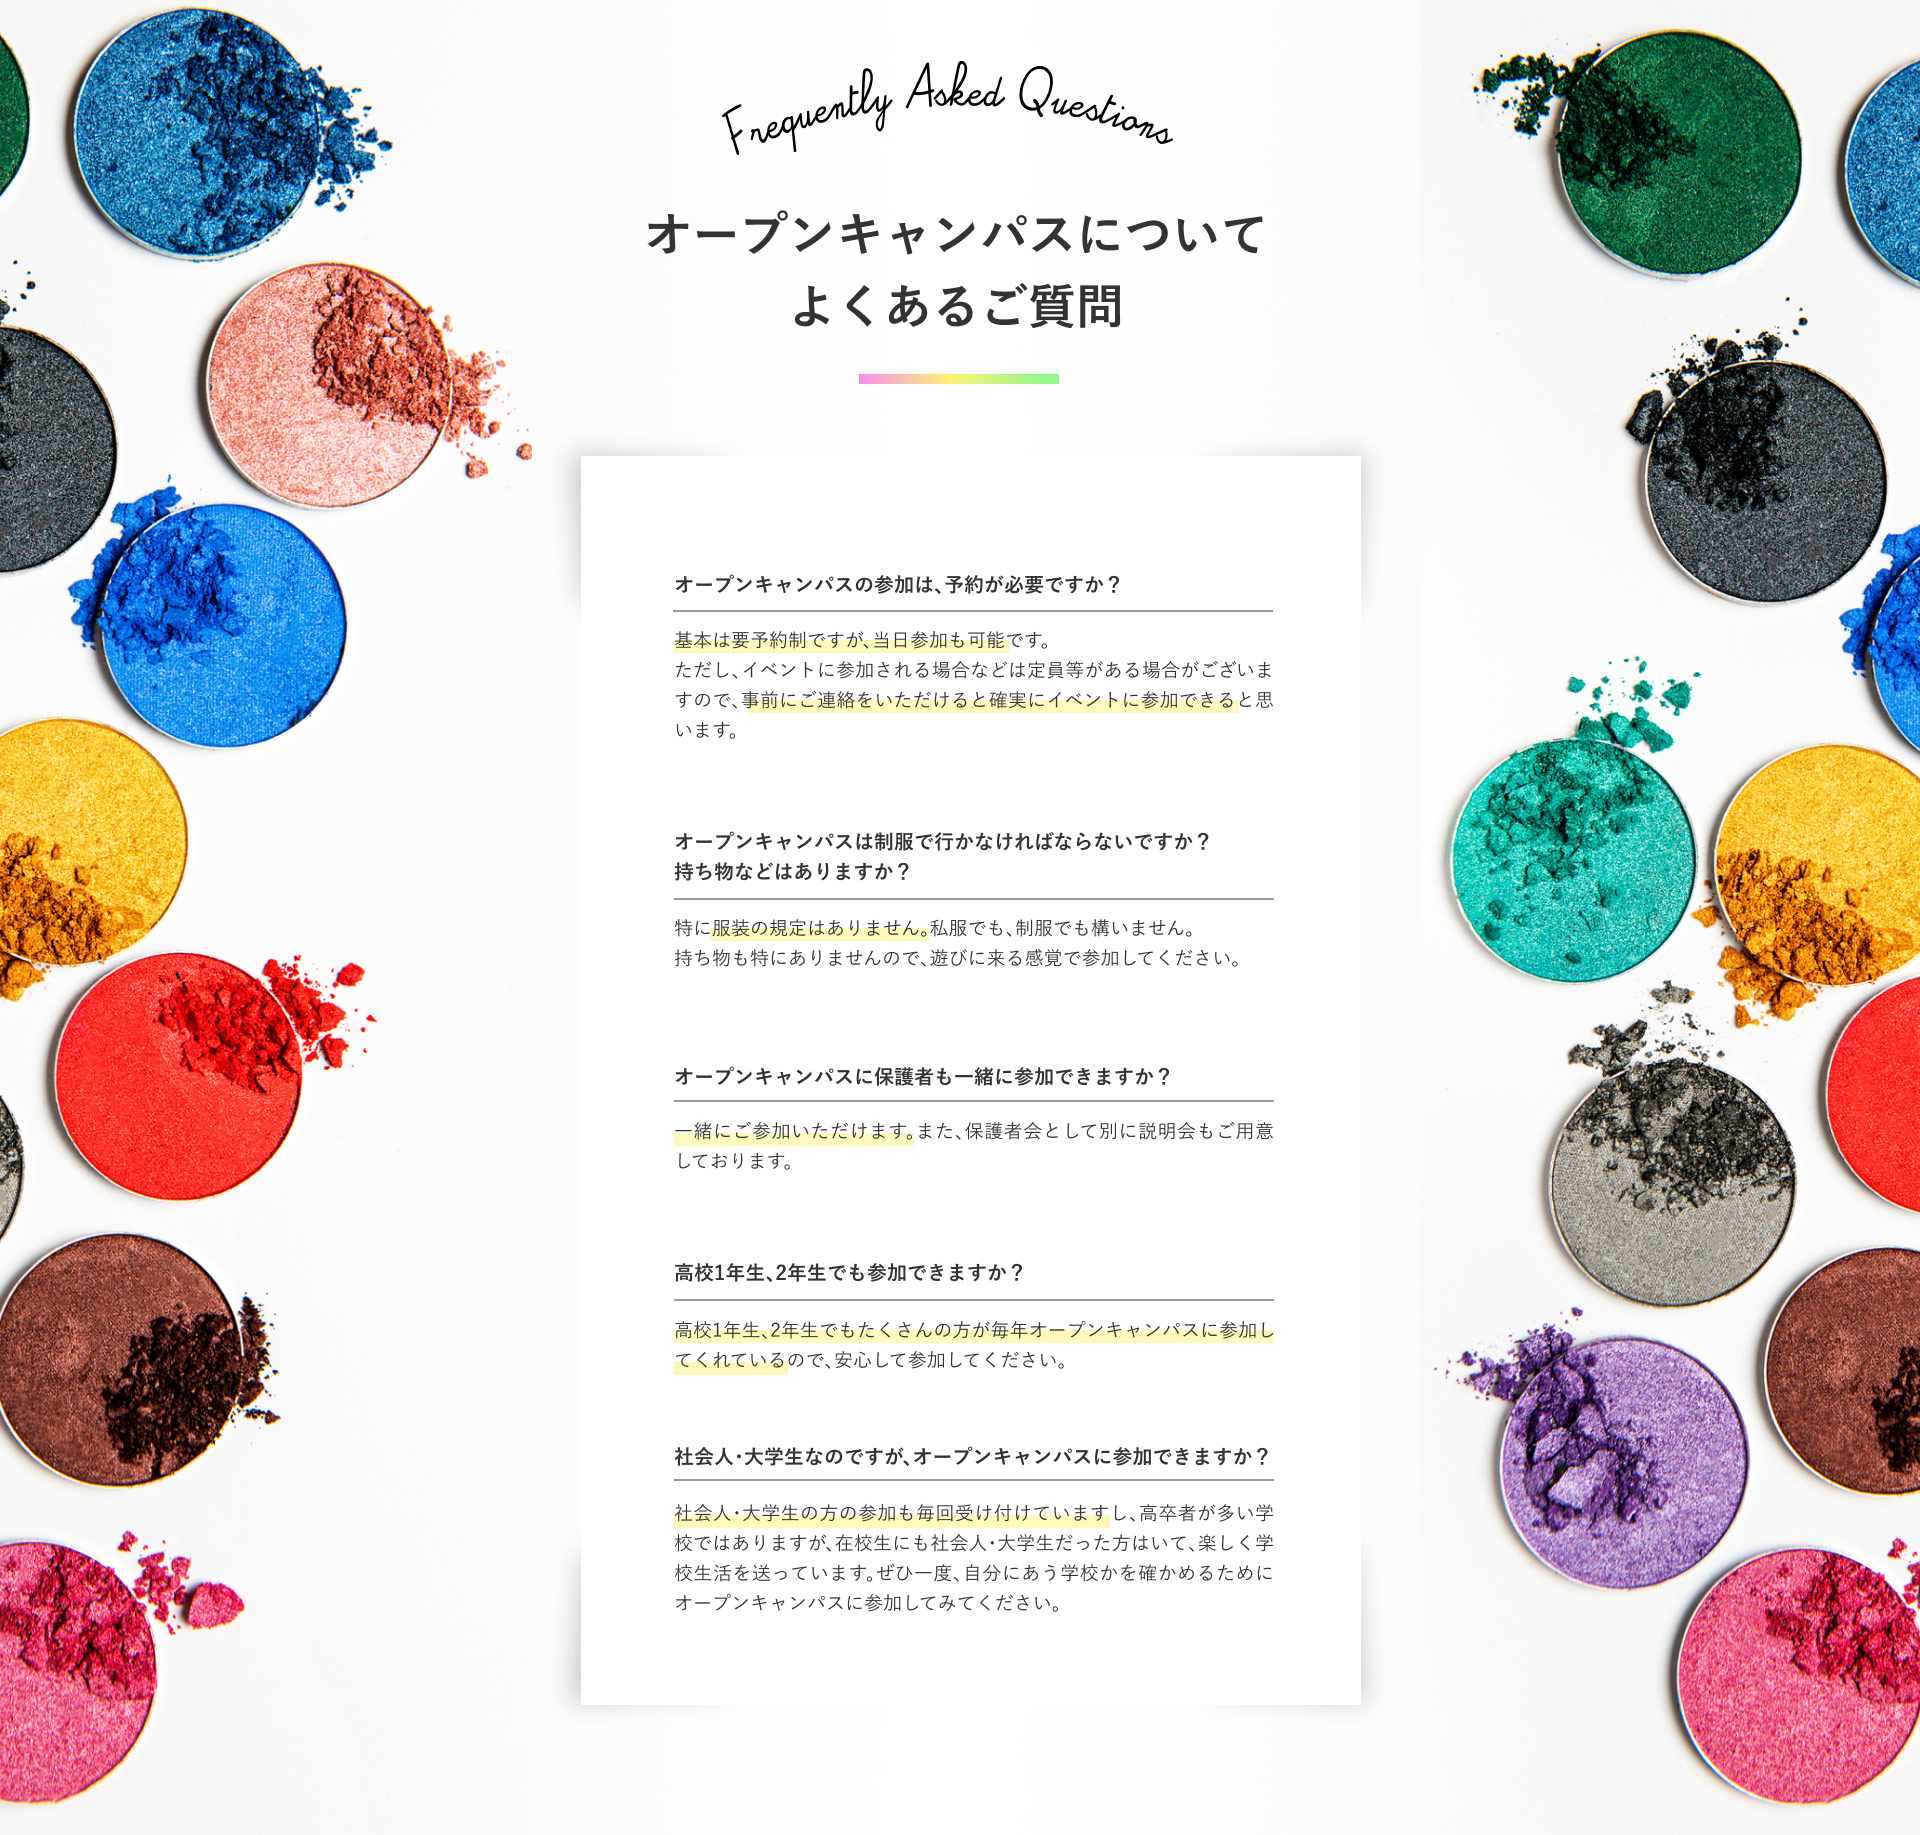 Frequently Asked Questions
オープンキャンパスについて
よくあるご質問
オープンキャンパスの参加は、予約が必要ですか？
基本は要予約制ですが、当日参加も可能です。
ただし、イベントに参加される場合などは定員等がある場合がございま
すので、事前にご連絡をいただけると確実にイベントに参加できると思
います。
オープンキャンパスは制服で行かなければならないですか？
持ち物などはありますか？
特に服装の規定はありません。私服でも、制服でも構いません。
持ち物も特にありませんので、遊びに来る感覚で参加してください。
オープンキャンパスに保護者も一緒に参加できますか？
一緒にご参加いただけます。また、保護者会として別に説明会もご用意
しております。
高校1年生、2年生でも参加できますか？
高校1年生、2年生でもたくさんの方が毎年オープンキャンパスに参加し
てくれているので、安心して参加してください。
社会人・大学生なのですが、オープンキャンパスに参加できますか？
社会人・大学生の方の参加も毎回受け付けていますし、高卒者が多い学
校ではありますが、在校生にも社会人・大学生だった方はいて、楽しく学
校生活を送っています。ぜひ一度、自分にあう学校かを確かめるために
オープンキャンパスに参加してみてください。